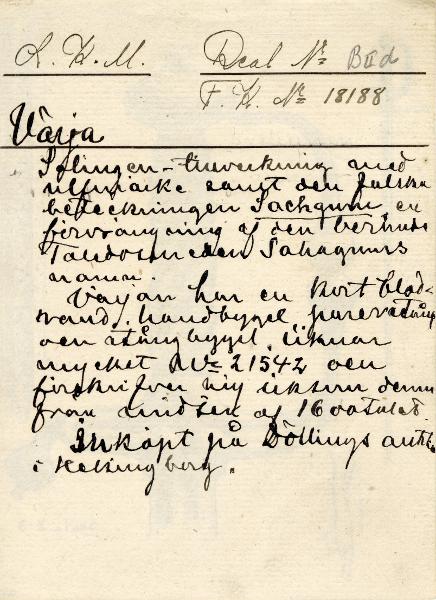 L. K. M. Deal Nr BIId
F. K. Nr 18188
Värja
Solingen-tillverkning med
ulfmärke samt den falska
beteckningen Sachgum, en
förvrängning af den berömde
Toledosmeden Sahagums
namn.
Värjan har en kort blod-
rand, handbygel, parerstång
och stångbygel, liknar
mycket Nr 21542 och
förskrifver sig liksom denna
från midten af 1600talet.
Inköpt på Döllings antik.
i Helsingborg.